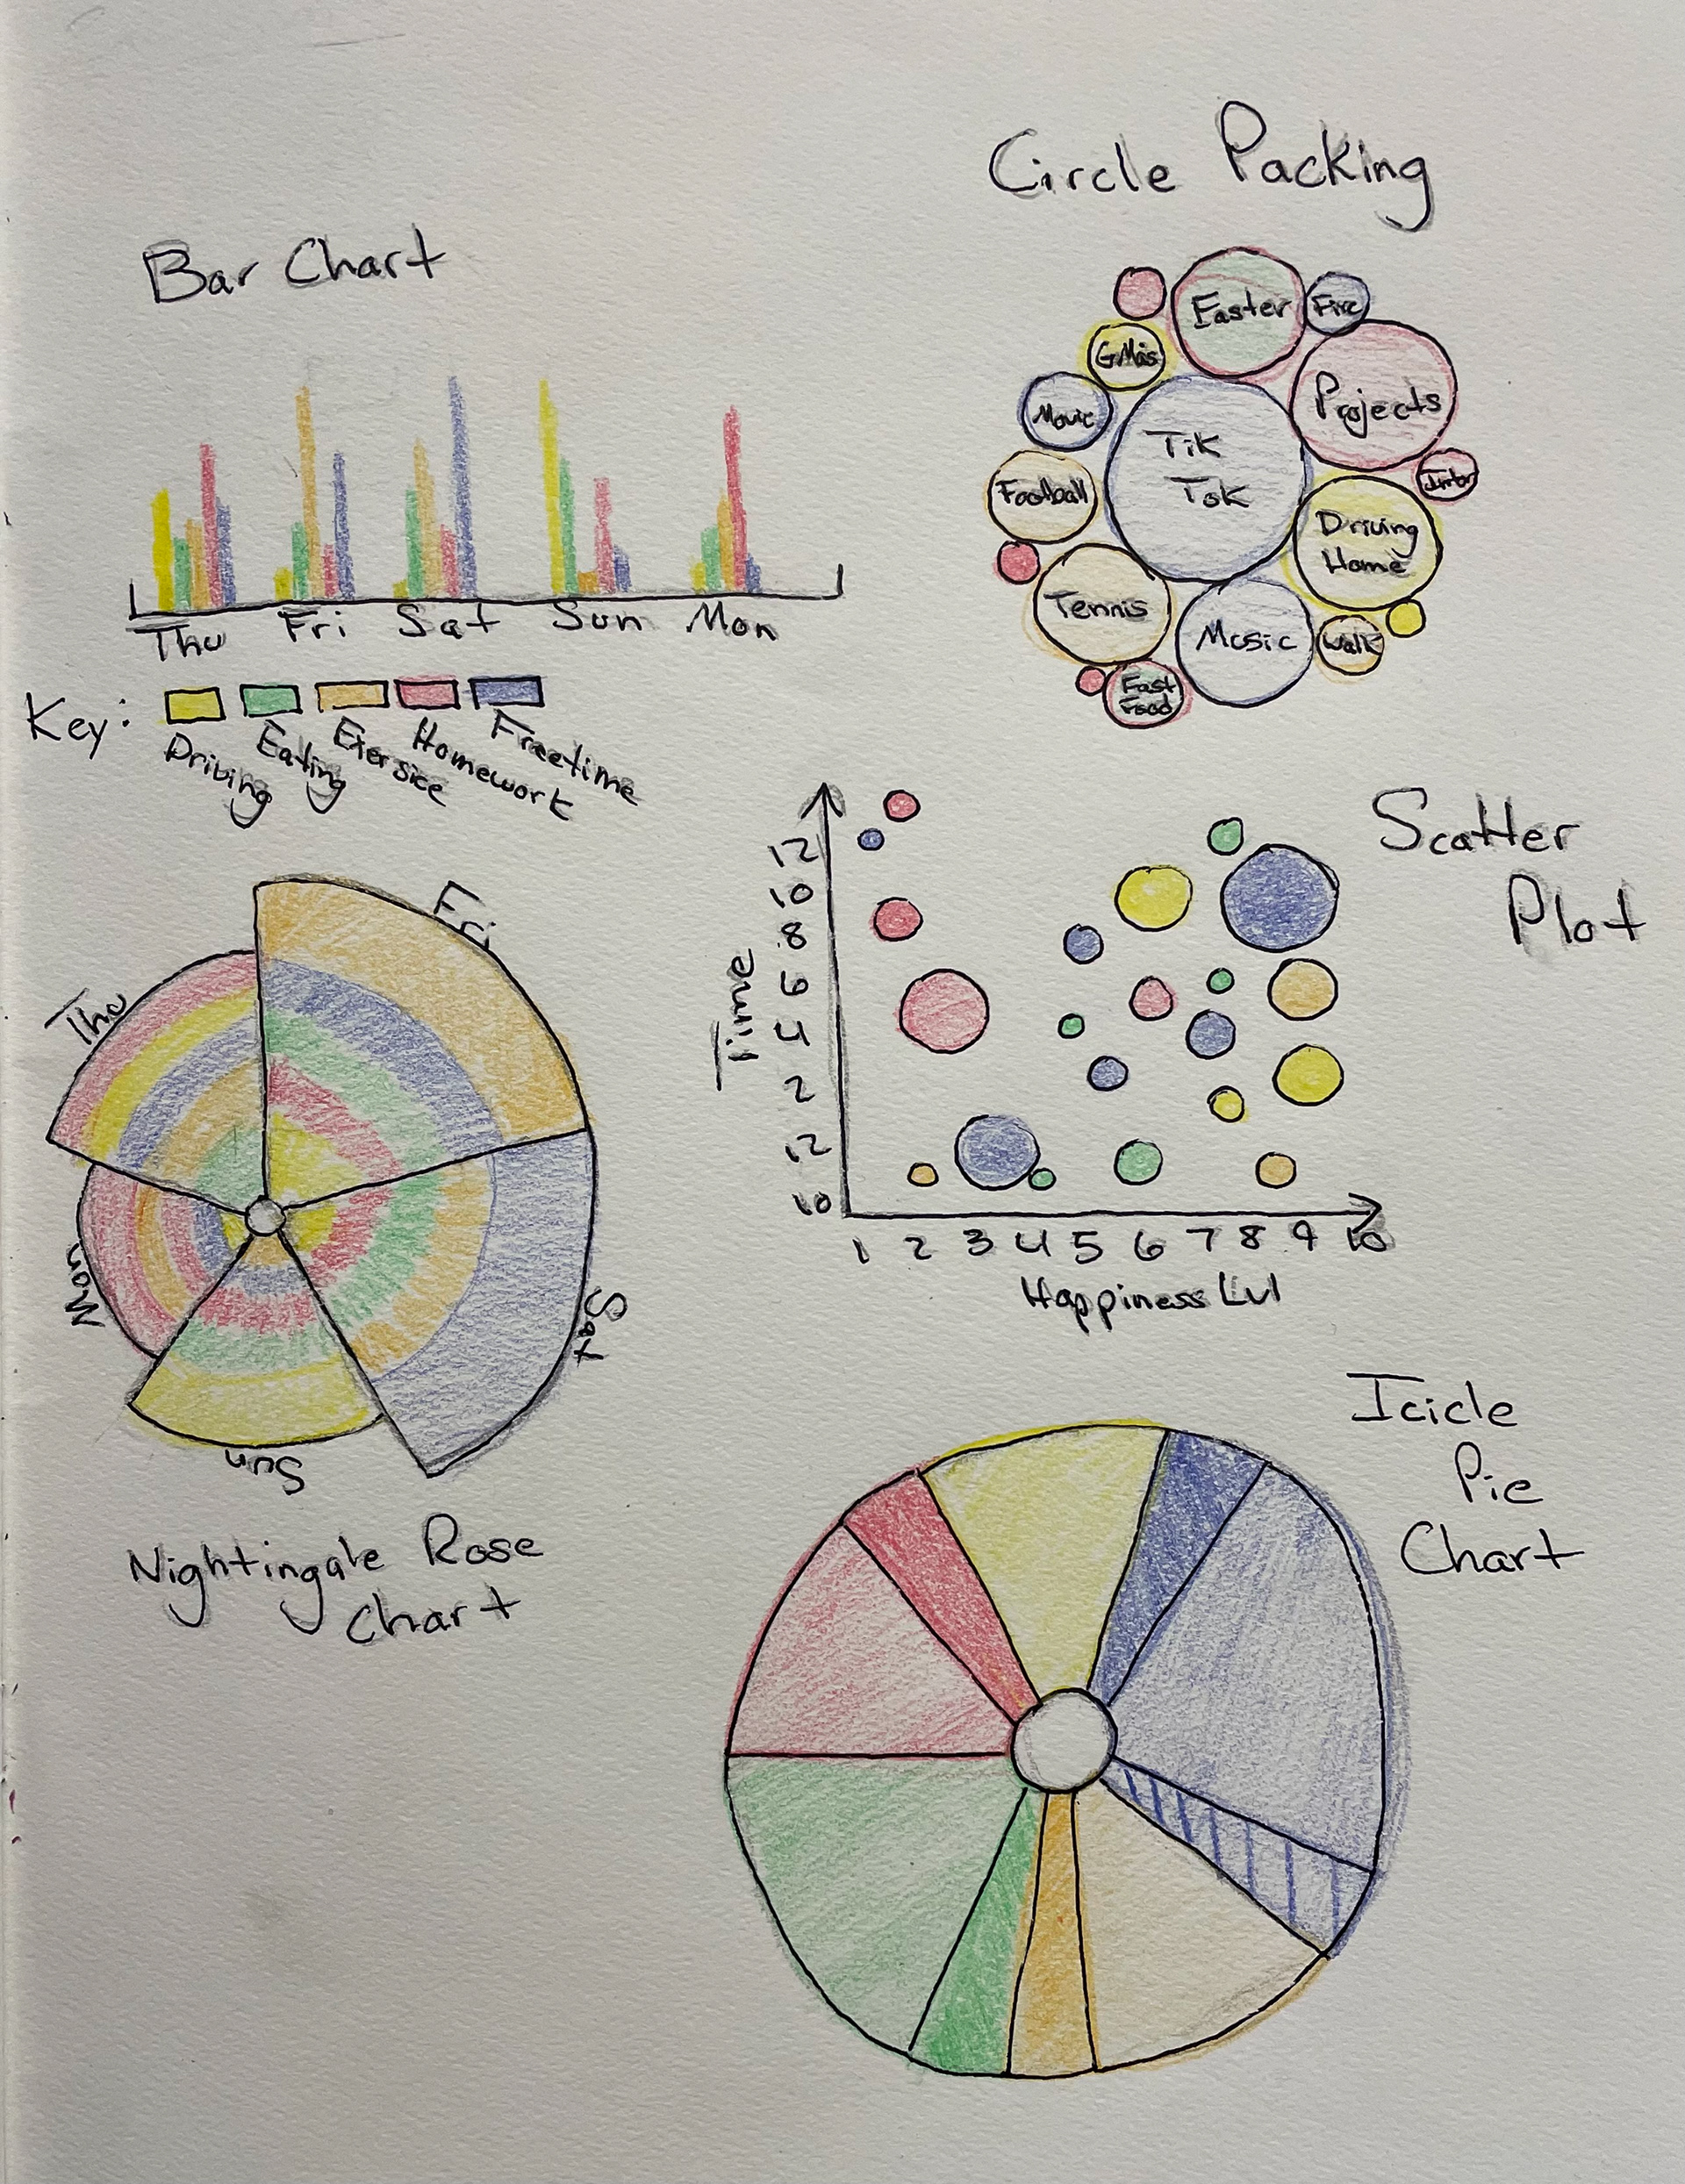 Circle Packing
Bar Chart
Easter
Fire
GMas
Projects
Movie
Tik
Tok
Football
Driving
Home
Tennis
Music
Walk
Fast
Food
Thu Fri Sat Sun Mon
Key:
Driving
Eating
Exersice
Homework
Freetime
Scatter
Plot
Time
12
10
8
6
4
2
12
10
1 2 3 4 5 6 7 8 9 10
Happiness Lvl
Thu
Fri
Sat
Sun
Mon
Nightingale Rose
Chart
Icicle
Pie
Chart